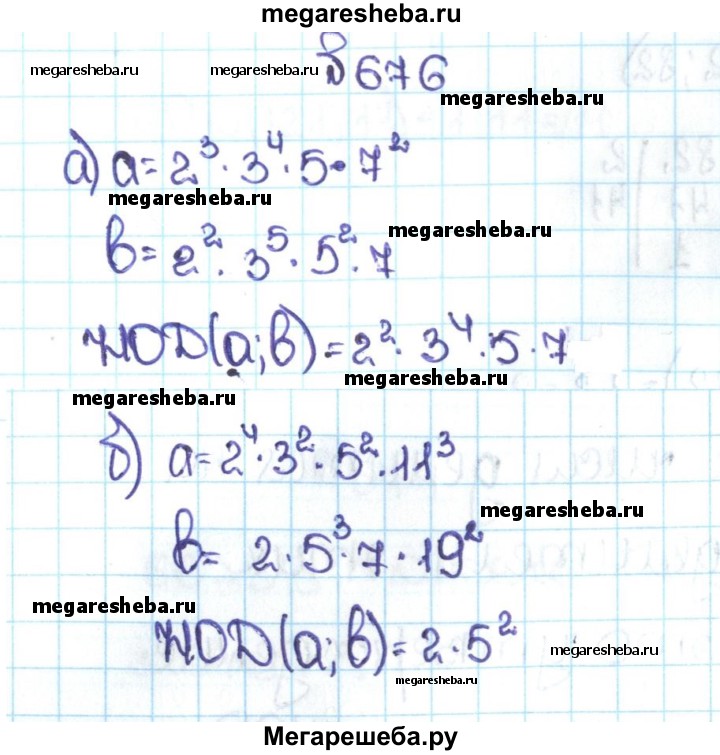 megaresheba.ru
megaresheba.ru megaresheba.ru № 676
megaresheba.ru
а) a = 2³ · 3⁴ · 5 · 7²
megaresheba.ru
в = 2² · 3⁵ · 5² · 7
megaresheba.ru
НОД(а; в) = 2² · 3⁴ · 5 · 7
megaresheba.ru
megaresheba.ru
б) a = 2⁴ · 3² · 5² · 11³
megaresheba.ru
в = 2 · 5³ · 7 · 19²
megaresheba.ru
НОД(а; в) = 2 · 5²
megaresheba.ru
megaresheba.ru
Мегарешеба.ру